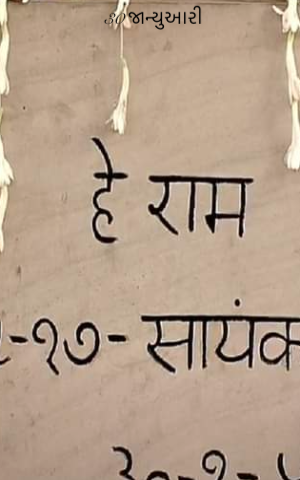 30જાન્યુઆરી
हे राम
-१७- सायंक
३०-१-